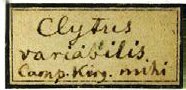 Clytus
variabilis
Camp. Kirg. mihi